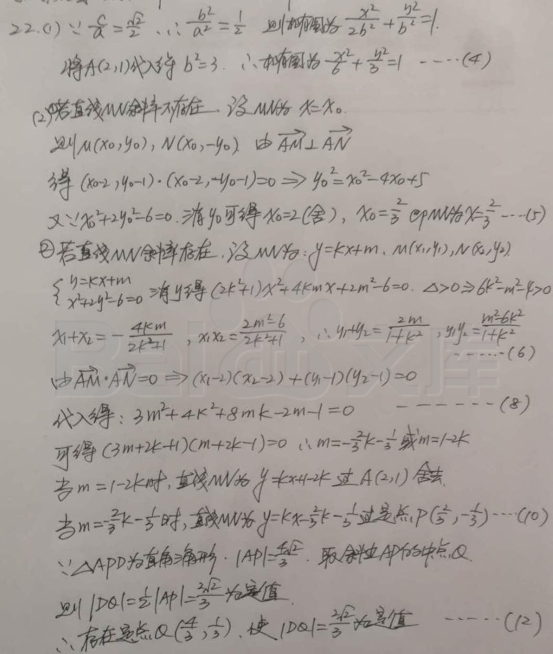 22.(1) ∵ c/a = √2/2 ∴ b²/a² = 1/2 则椭圆为 x²/2b² + y²/b² = 1.
将A(2,1)代入得 b²=3. ∴ 椭圆为 x²/6 + y²/3 = 1 ······(4)
(2)①若直线MN斜率不存在. 设MN为 x=x₀.
则M(x₀,y₀), N(x₀,-y₀) 由 AM⊥AN
得 (x₀-2, y₀-1)·(x₀-2, -y₀-1)=0 ⇒ y₀²=x₀²-4x₀+5
又∵x₀²+2y₀²-6=0. 消y₀可得 x₀=2(舍), x₀=2/3 即MN为x=2/3 ······(5)
②若直线MN斜率存在. 设MN为: y=kx+m, M(x₁,y₁), N(x₂,y₂)
{y=kx+m x²+2y²-6=0 消y得 (2k²+1)x²+4kmx+2m²-6=0. Δ>0 ⇒ 6k²-m²+3>0
x₁+x₂ = -4km/2k²+1, x₁x₂ = 2m²-6/2k²+1, ∴ y₁+y₂ = 2m/1+k², y₁y₂ = m²-6k²/1+k²
······(6)
由AM·AN=0 ⇒ (x₁-2)(x₂-2)+(y₁-1)(y₂-1)=0
代入得: 3m²+4k²+8mk-2m-1=0 ······(8)
可得 (3m+2k+1)(m+2k-1)=0 ∴ m=-2/3k-1/3 或m=1-2k
当m=1-2k时, 直线MN为 y=kx+1-2k 过A(2,1) 舍去.
当m=-2/3k-1/3时, 直线MN为 y=kx-2/3k-1/3 过定点P(2/3,-1/3)······(10)
∵ △APD为直角三角形. |AP|=4√2/3. 取斜边AP的中点Q.
则|DQ|=1/2|AP|=2√2/3 为定值
∴ 存在定点Q(4/3,1/3). 使|DQ|=2√2/3 为定值 ······(12)